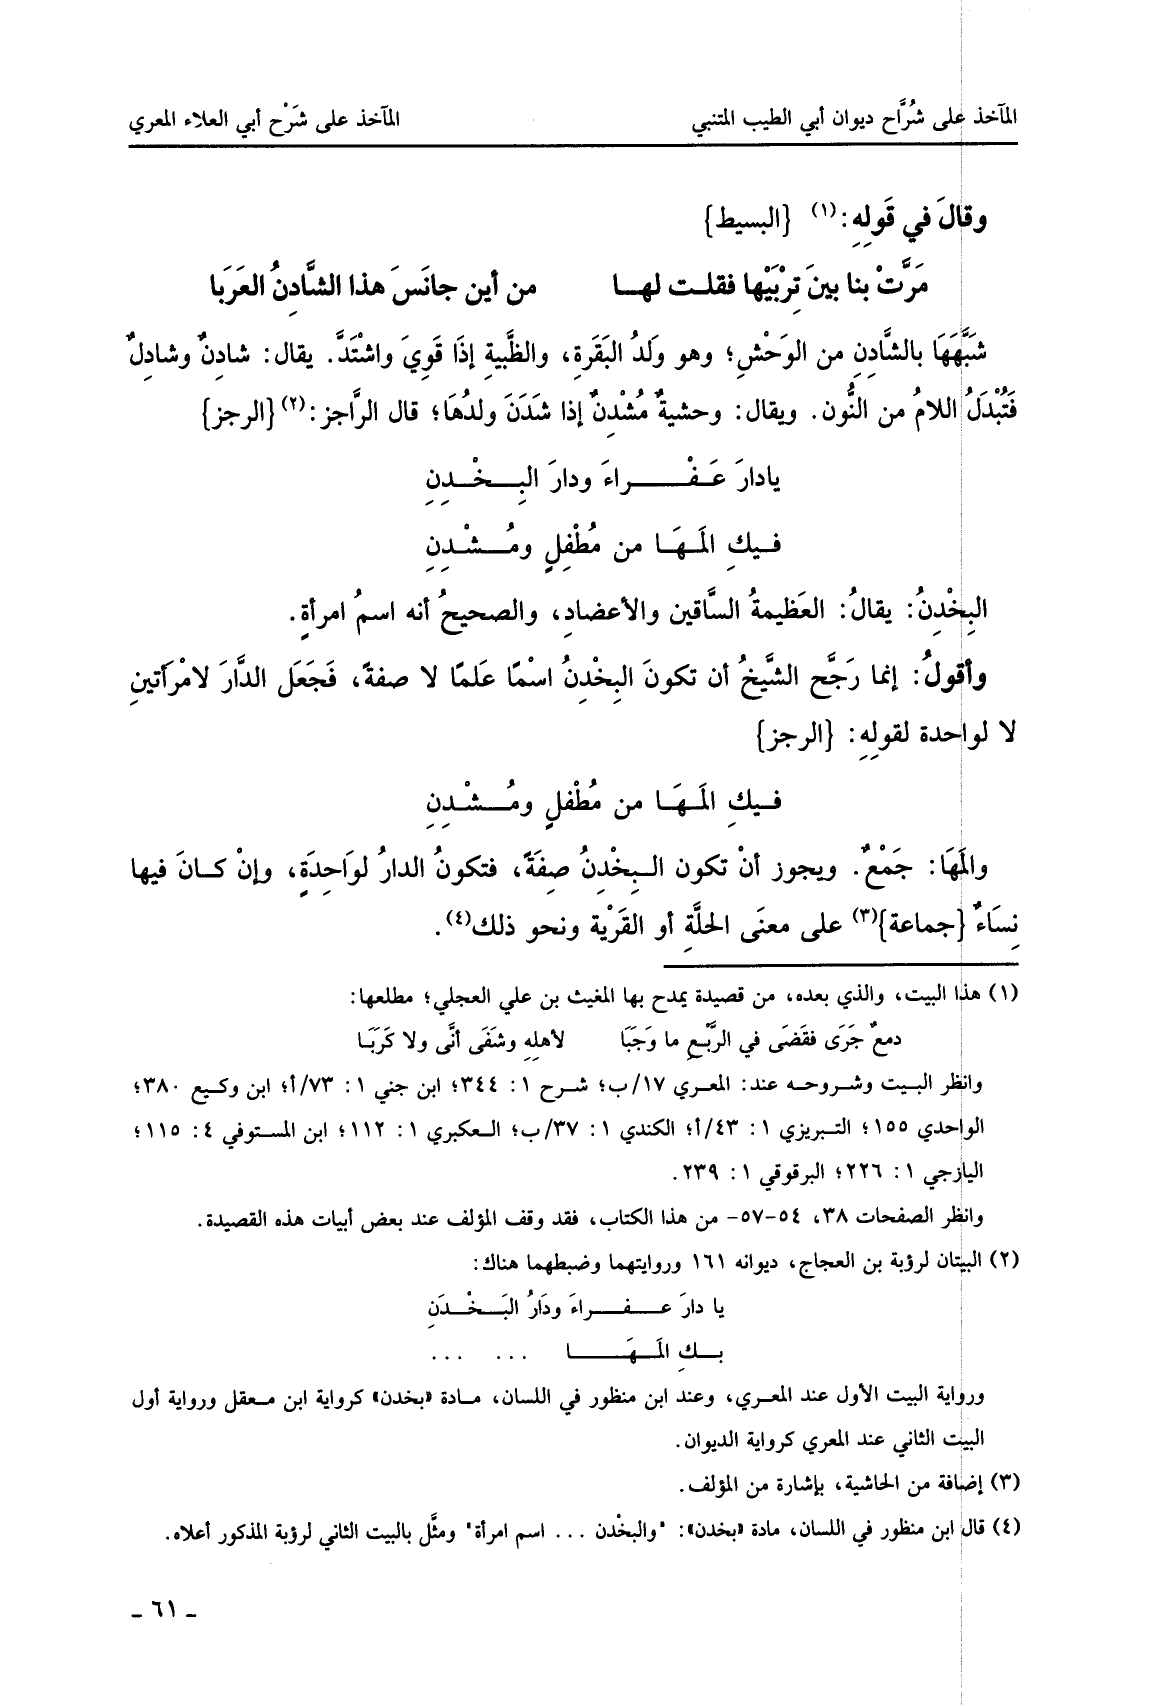 المآخذ على شُرَّاح ديوان أبي الطيب المتنبي المآخذ على شَرْح أبي العلاء المعري
وقالَ في قَولِهِ:(١) {البسيط}
مَرَّتْ بنا بينَ تِرْبَيْها فقلت لها من أين جانَسَ هذا الشَّادِنُ العَرَبَا
شَبَّهَهَا بالشَّادِنِ من الوَحْشِ؛ وهو وَلَدُ البَقَرةِ، والظَّبيةِ إذَا قَوِيَ واشْتَدَّ. يقال: شادِنٌ وشادِلٌ
فَتُبْدَلُ اللامُ من النُّون. ويقال: وحشيةٌ مُشْدِنٌ إذا شَدَنَ ولدُهَا؛ قال الرَّاجز:(٢) {الرجز}
يادارَ عَفْراءَ ودارَ البِخْدِنِ
فيكِ المَهَا من مُطْفِلٍ ومُشْدِنِ
البِخْدِنُ: يقالُ: العَظيمةُ السَّاقين والأعضادِ، والصحيحُ أنه اسمُ امرأةٍ.
وأقولُ: إنما رَجَّح الشَّيخُ أن تكونَ البِخْدنُ اسْمًا عَلَمًا لا صفةً، فَجَعَل الدَّارَ لامْرَأتينِ
لا لواحدة لقولِهِ: {الرجز}
فيكِ المَهَا من مُطْفِلٍ ومُشْدِنِ
والمَهَا: جَمْعٌ. ويجوز أنْ تكون البِخْدِنُ صِفَةً، فتكونُ الدارُ لوَاحِدَةٍ، وإنْ كانَ فيها
نِسَاءٌ {جماعة}(٣) على معنَى الحلَّةِ أو القَرْية ونحو ذلك(٤).
(١) هذا البيت، والذي بعده، من قصيدة يمدح بها المغيث بن علي العجلي؛ مطلعها:
دمعٌ جَرَى فقَضَى في الرَّبْعِ ما وَجَبَا لأهلِهِ وشَفَى أنَّى ولا كَرَبَا
وانظر البيت وشروحه عند: المعري ١٧/ب؛ شرح ١: ٣٤٤؛ ابن جني ١: ٧٣/أ؛ ابن وكيع ٣٨٠؛
الواحدي ١٥٥؛ التبريزي ١: ٤٣/أ؛ الكندي ١: ٣٧/ب؛ العكبري ١: ١١٢؛ ابن المستوفي ٤: ١١٥؛
اليازجي ١: ٢٢٦؛ البرقوقي ١: ٢٣٩.
وانظر الصفحات ٣٨، ٥٤-٥٧- من هذا الكتاب، فقد وقف المؤلف عند بعض أبيات هذه القصيدة.
(٢) البيتان لرؤبة بن العجاج، ديوانه ١٦١ وروايتهما وضبطهما هناك:
يا دارَ عفراءَ ودَارُ البَخْدَنِ
بكِ المَهَا ... ...
ورواية البيت الأول عند المعري، وعند ابن منظور في اللسان، مادة «بخدن» كرواية ابن معقل ورواية أول
البيت الثاني عند المعري كرواية الديوان.
(٣) إضافة من الحاشية، بإشارة من المؤلف.
(٤) قال ابن منظور في اللسان، مادة «بخدن»: "والبخْدن ... اسم امرأة" ومثَّل بالبيت الثاني لرؤبة المذكور أعلاه.
ـ ٦١ ـ